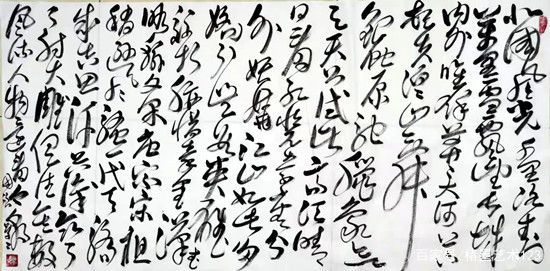 北国风光千里冰封
万里雪飘望长城
内外唯余莽莽大河上
下顿失滔滔山舞
银蛇原驰蜡象欲
与天公试比高须晴
日看红装素裹分
外妖娆江山如此多
娇引无数英雄
竞折腰惜秦皇汉武
略输文采唐宗宋祖
稍逊风骚一代天骄
成吉思汗只识弯
弓射大雕俱往矣数
风流人物还看今朝